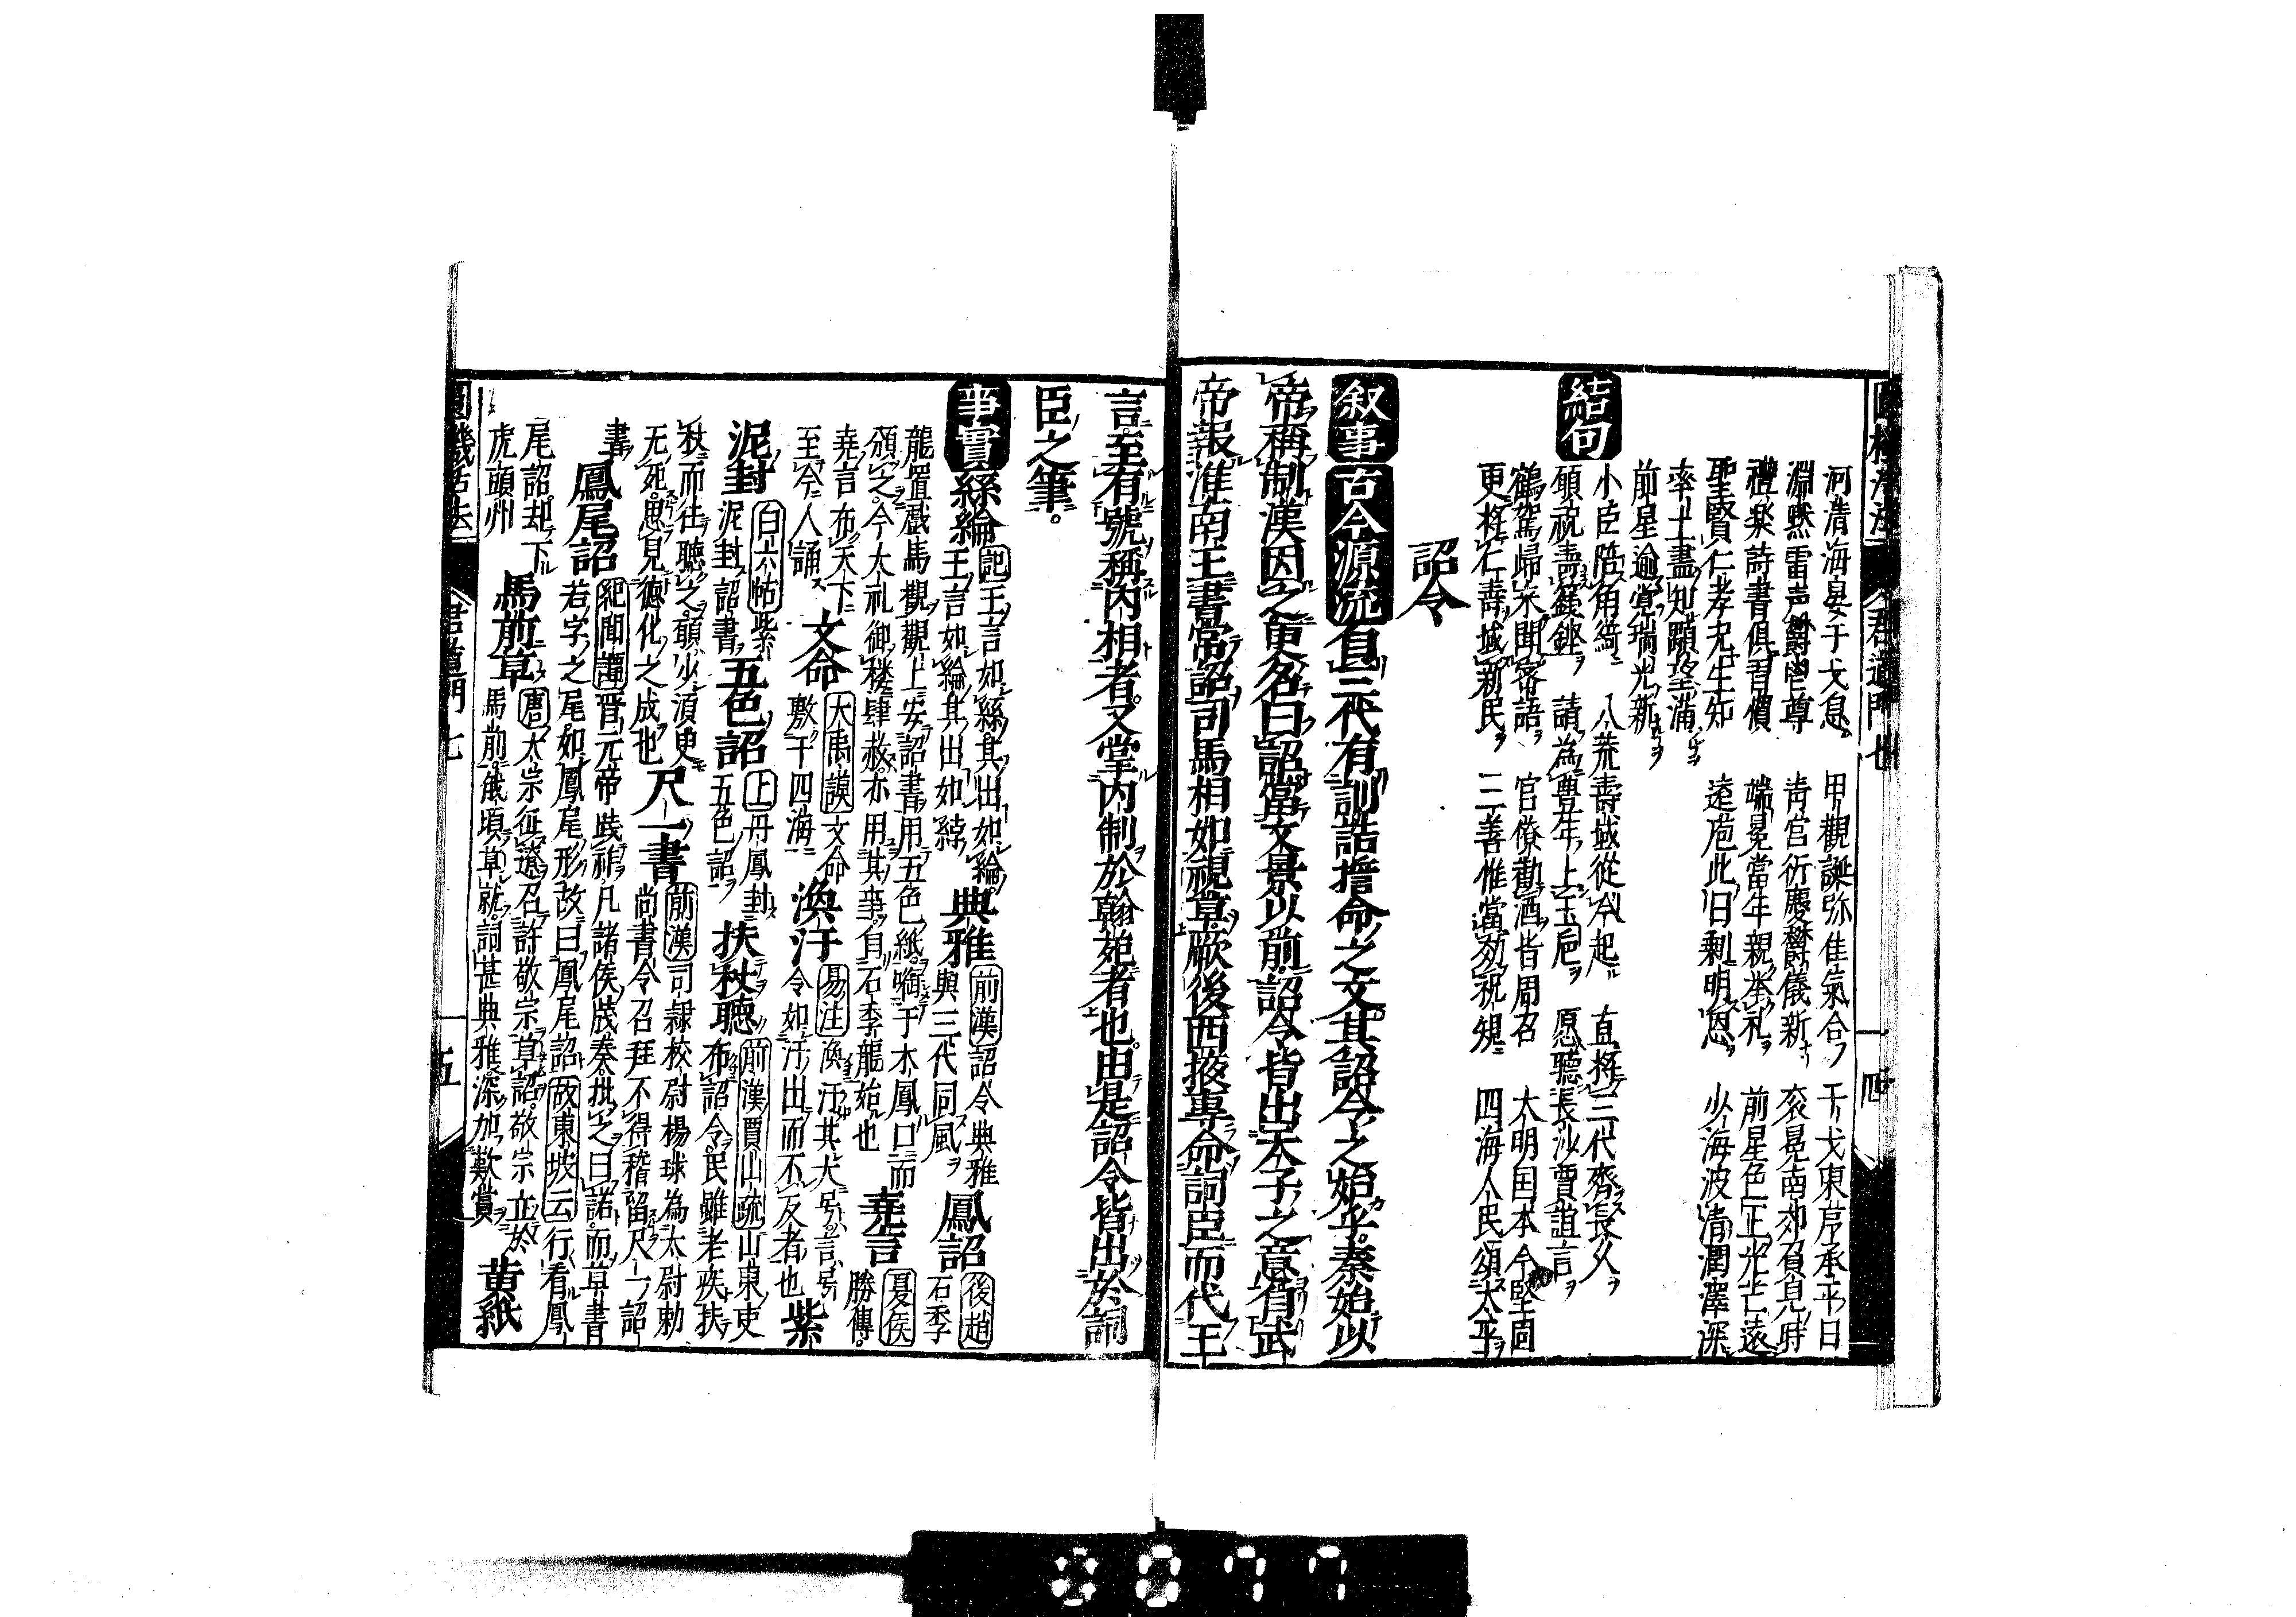 河清海晏干戈息 甲觀誕弥佳氣合 干戈東序承平日
淵默雷声欝邕尊 青宮衍慶欝儀新 衮冕南郊有見時
禮樂詩書俱習慣 端冕當年親挙礼 前星色正光芒遠
聖賢仁孝充生知 遠庖此旧剰明恩 少海波清潤澤深
率土盡知顒望滿
前星逾覚瑞光新
結句
小臣陪角綺 八荒壽域從今起 直将三代齊長久
願祝壽籛鏗 請為豊年上玉巵 愿聴長沙賈誼言
鶴駕歸来聞客語 官僚勸酒皆周召 大明囯本今堅固
更将仁壽域新民 三善惟當効祝規 四海人民頌太平
詔令
叙事 古今源流 自三代有訓誥誓命之文其詔令之始乎秦始以
帝稱制漢因之更名曰詔當文景以前詔令皆出天子之意有武
帝報淮南王書常詔司馬相如視草厥後西掖專命詞臣而代王
言至有號稱内相者又掌内制於翰苑者也由是詔令皆出於詞
臣之筆。
事實 絲綸 記王言如絲其出如綸 典雅 前漢詔令典雅 鳳詔 後趙
王言如綸其出如綍 與三代同風 石季
龍置戲馬觀觀上安詔書用五色紙啣于木鳳口而 堯言 夏侯
頒之今大礼御楼肆赦亦用其事自石季龍始也 勝傳
堯言布天下 文命 大禹謨文命 渙汗 易注渙汗其大号言号
至今人誦 敷于四海 令如汗出而不反者也 紫
泥封 白六帖紫 五色詔 上丹鳳封 扶杖聴 前漢賈山疏山東吏
泥封詔書 五色詔 布詔令民雖老疾扶
杖而往聴之願少須臾 尺一書 前漢司隷校尉楊球為太尉勅
无死思見徳化之成也 尚書令召拜不得稽留尺一詔
書 鳳尾詔 紀聞譚晋元帝践祚凡諸侯牋奏批之曰諾而草書
若字之尾如鳳尾形故曰鳳尾詔故東坡云行看鳳
尾詔却下 馬前草 唐太宗征遼召許敬宗草詔敬宗立於
虎頭州 馬前俄頃草就詞甚典雅深加歎賞 黄紙
君道門七
五